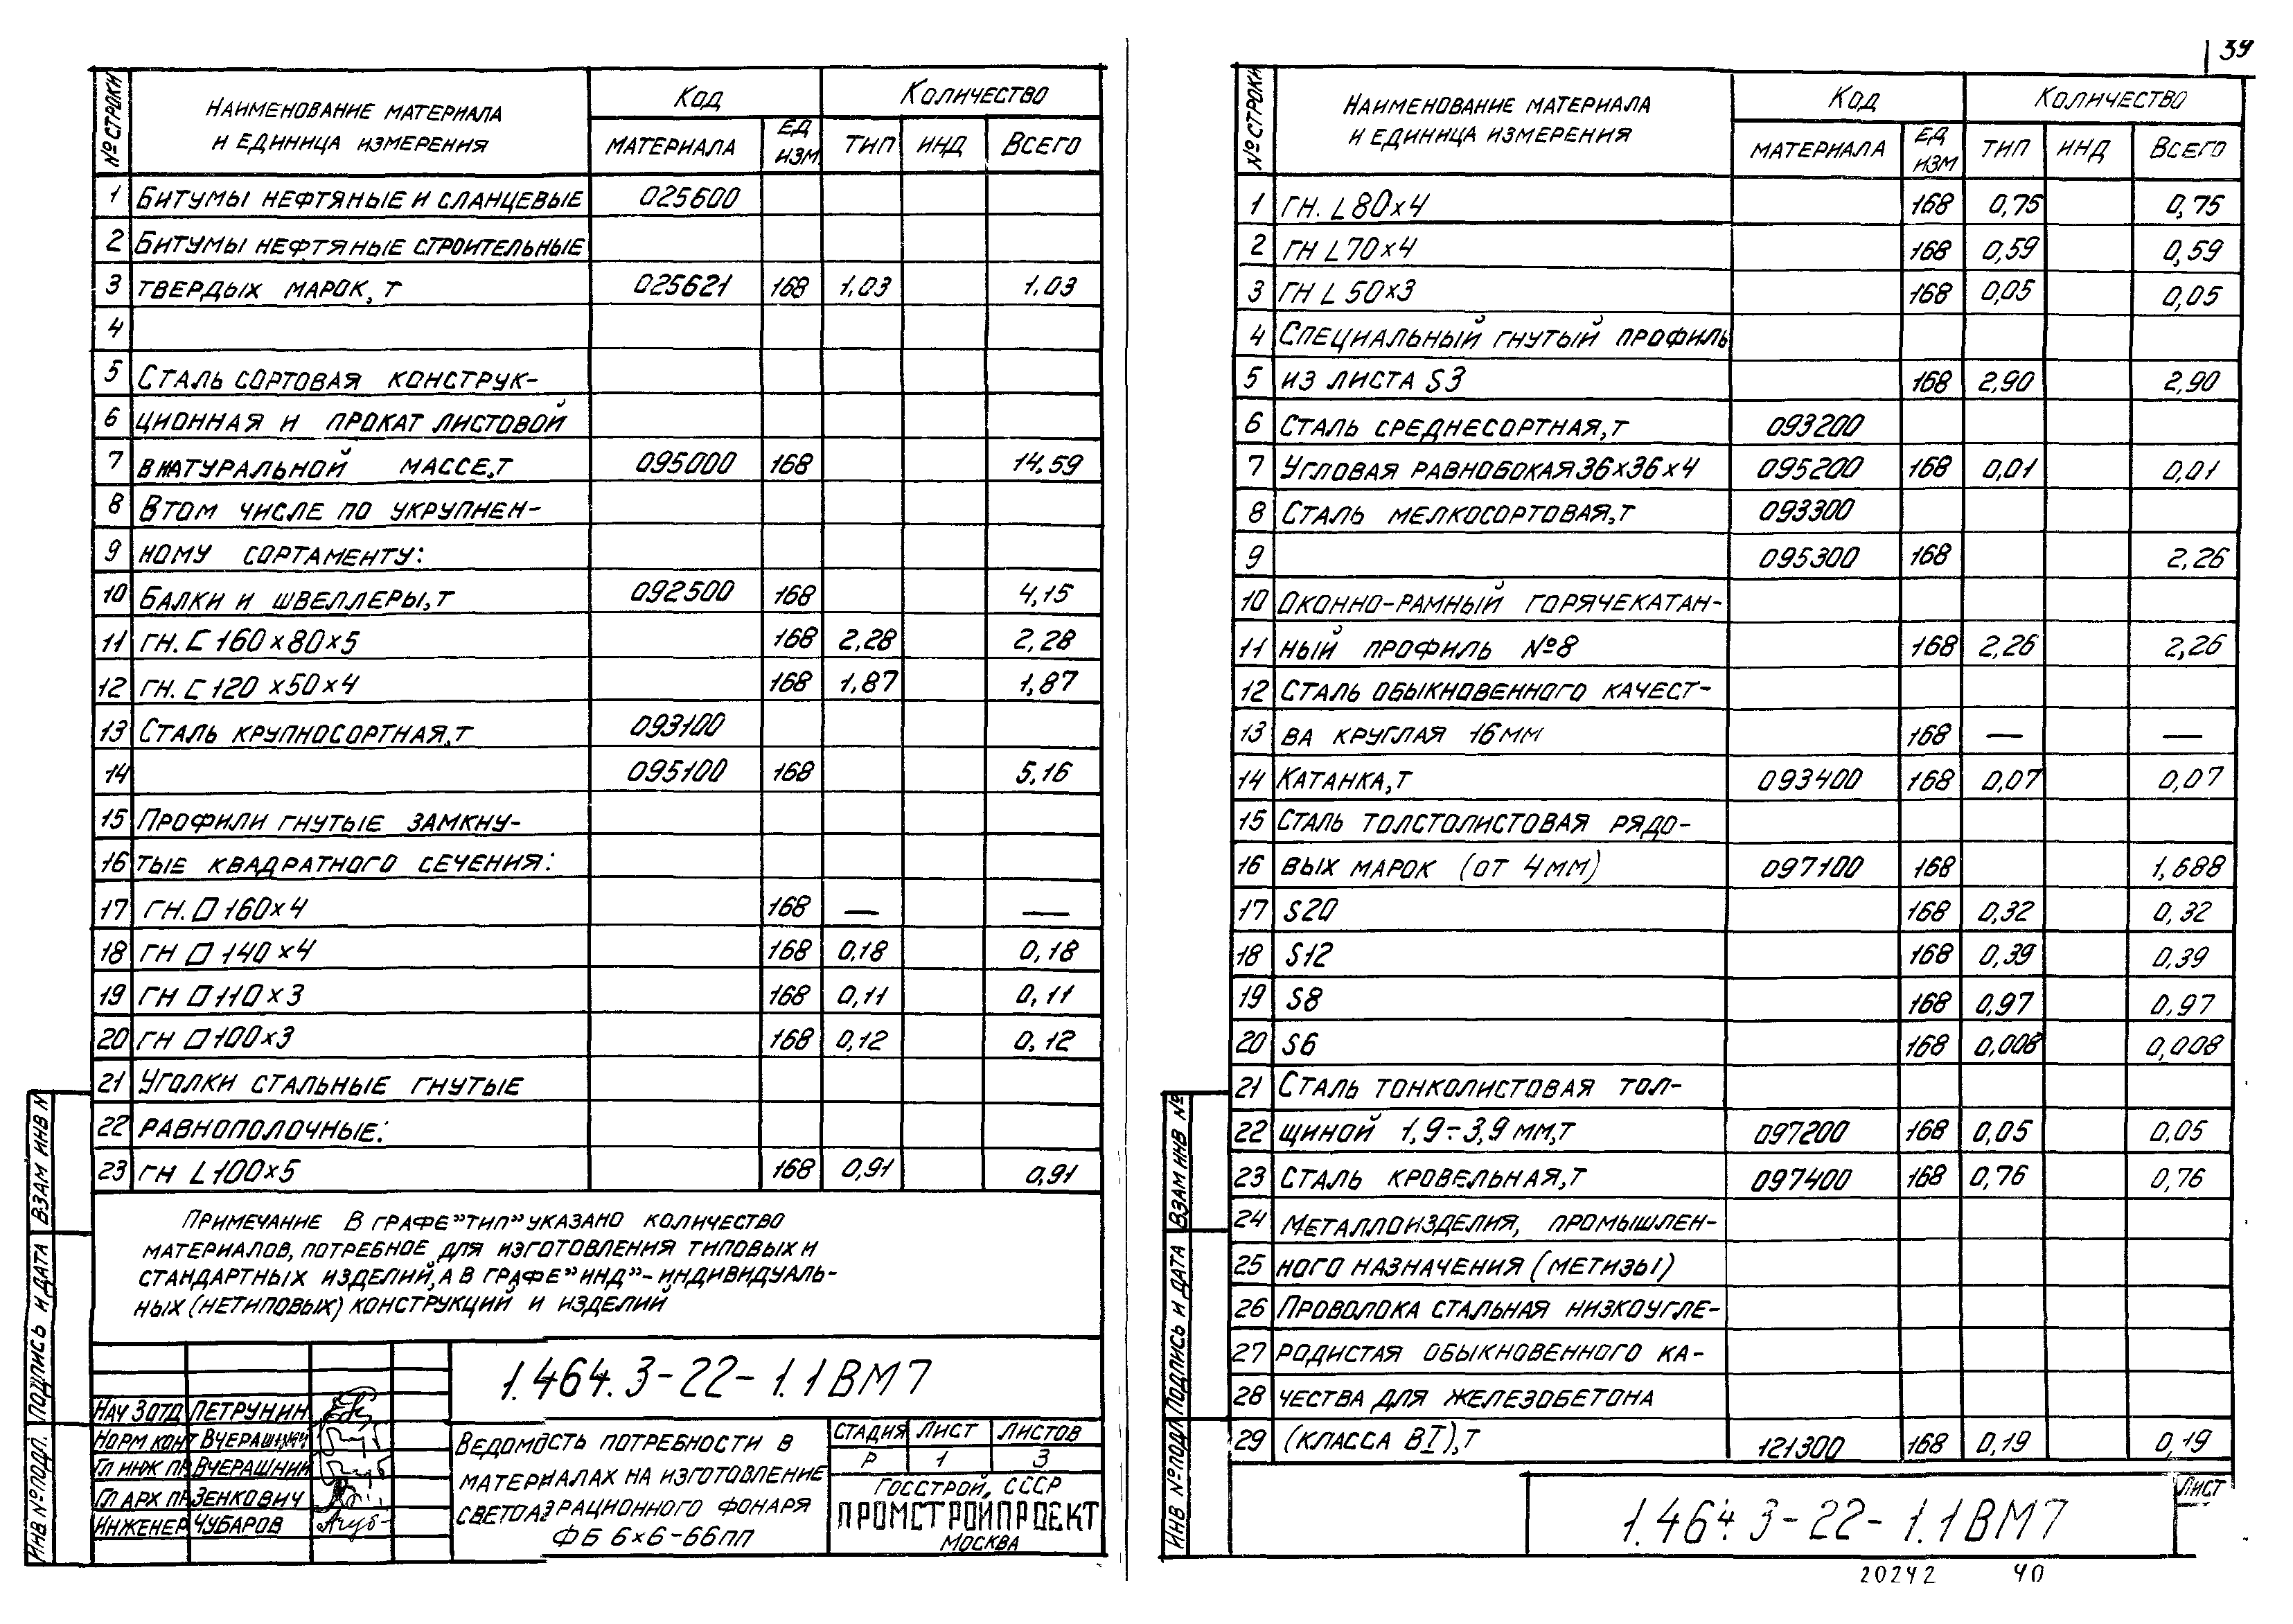 39
№ СТРОКИ
НАИМЕНОВАНИЕ МАТЕРИАЛА
И ЕДИНИЦА ИЗМЕРЕНИЯ
КОД
КОЛИЧЕСТВО
МАТЕРИАЛА
ЕД
ИЗМ
ТИП ИНД ВСЕГО
1 БИТУМЫ НЕФТЯНЫЕ И СЛАНЦЕВЫЕ 025600
2 БИТУМЫ НЕФТЯНЫЕ СТРОИТЕЛЬНЫЕ
3 ТВЕРДЫХ МАРОК, Т 025621 168 1,03 1,03
4
5 СТАЛЬ СОРТОВАЯ КОНСТРУК-
6 ЦИОННАЯ И ПРОКАТ ЛИСТОВОЙ
7 В НАТУРАЛЬНОЙ МАССЕ,Т 095000 168 14,59
8 В ТОМ ЧИСЛЕ ПО УКРУПНЕН-
9 НОМУ СОРТАМЕНТУ:
10 БАЛКИ И ШВЕЛЛЕРЫ,Т 092500 168 4,15
11 ГН. [ 160×80×5 168 2,28 2,28
12 ГН. [ 120×50×4 168 1,87 1,87
13 СТАЛЬ КРУПНОСОРТНАЯ,Т 093100
14 095100 168 5,16
15 ПРОФИЛИ ГНУТЫЕ ЗАМКНУ-
16 ТЫЕ КВАДРАТНОГО СЕЧЕНИЯ:
17 ГН. □ 160×4 168 — —
18 ГН □ 140×4 168 0,18 0,18
19 ГН □ 110×3 168 0,11 0,11
20 ГН □ 100×3 168 0,12 0,12
21 УГОЛКИ СТАЛЬНЫЕ ГНУТЫЕ
22 РАВНОПОЛОЧНЫЕ:
23 ГН L 100×5 168 0,91 0,91
ПРИМЕЧАНИЕ В ГРАФЕ "ТИП" УКАЗАНО КОЛИЧЕСТВО
МАТЕРИАЛОВ, ПОТРЕБНОЕ ДЛЯ ИЗГОТОВЛЕНИЯ ТИПОВЫХ И
СТАНДАРТНЫХ ИЗДЕЛИЙ, А В ГРАФЕ "ИНД"-ИНДИВИДУАЛЬ-
НЫХ (НЕТИПОВЫХ) КОНСТРУКЦИЙ И ИЗДЕЛИЙ
1.464.3-22-1.1ВМ7
НАЧ ЗОТД ПЕТРУНИН
НОРМ КОНТ ВЧЕРАШНИЙ
ГЛ ИНЖ ПР ВЧЕРАШНИЙ
ГЛ АРХ ПР ЗЕНКОВИЧ
ИНЖЕНЕР ЧУБАРОВ
ВЕДОМОСТЬ ПОТРЕБНОСТИ В
МАТЕРИАЛАХ НА ИЗГОТОВЛЕНИЕ
СВЕТОАЭРАЦИОННОГО ФОНАРЯ
ФБ 6×6-66ПП
СТАДИЯ ЛИСТ ЛИСТОВ
Р 1 3
ГОССТРОЙ, СССР
ПРОМСТРОЙПРОЕКТ
МОСКВА
ИНВ № ПОДЛ. ПОДПИСЬ И ДАТА ВЗАМ ИНВ N
№ СТРОКИ
НАИМЕНОВАНИЕ МАТЕРИАЛА
И ЕДИНИЦА ИЗМЕРЕНИЯ
КОД
КОЛИЧЕСТВО
МАТЕРИАЛА
ЕД
ИЗМ
ТИП ИНД ВСЕГО
1 ГН. L 80×4 168 0,75 0,75
2 ГН L 70×4 168 0,59 0,59
3 ГН L 50×3 168 0,05 0,05
4 СПЕЦИАЛЬНЫЙ ГНУТЫЙ ПРОФИЛЬ
5 ИЗ ЛИСТА S3 168 2,90 2,90
6 СТАЛЬ СРЕДНЕСОРТНАЯ,Т 093200
7 УГЛОВАЯ РАВНОБОКАЯ 36×36×4 095200 168 0,01 0,01
8 СТАЛЬ МЕЛКОСОРТОВАЯ,Т 093300
9 095300 168 2,26
10 ОКОННО-РАМНЫЙ ГОРЯЧЕКАТАН-
11 НЫЙ ПРОФИЛЬ №8 168 2,26 2,26
12 СТАЛЬ ОБЫКНОВЕННОГО КАЧЕСТ-
13 ВА КРУГЛАЯ 16ММ 168 — —
14 КАТАНКА,Т 093400 168 0,07 0,07
15 СТАЛЬ ТОЛСТОЛИСТОВАЯ РЯДО-
16 ВЫХ МАРОК (ОТ 4ММ) 097100 168 1,688
17 S20 168 0,32 0,32
18 S12 168 0,39 0,39
19 S8 168 0,97 0,97
20 S6 168 0,008 0,008
21 СТАЛЬ ТОНКОЛИСТОВАЯ ТОЛ-
22 ЩИНОЙ 1,9÷3,9 ММ,Т 097200 168 0,05 0,05
23 СТАЛЬ КРОВЕЛЬНАЯ,Т 097400 168 0,76 0,76
24 МЕТАЛЛОИЗДЕЛИЯ, ПРОМЫШЛЕН-
25 НОГО НАЗНАЧЕНИЯ (МЕТИЗЫ)
26 ПРОВОЛОКА СТАЛЬНАЯ НИЗКОУГЛЕ-
27 РОДИСТАЯ ОБЫКНОВЕННОГО КА-
28 ЧЕСТВА ДЛЯ ЖЕЛЕЗОБЕТОНА
29 (КЛАССА ВI),Т 121300 168 0,19 0,19
1.464.3-22-1.1ВМ7
ЛИСТ
ИНВ № ПОДЛ ПОДПИСЬ И ДАТА ВЗАМ ИНВ №
20242 40